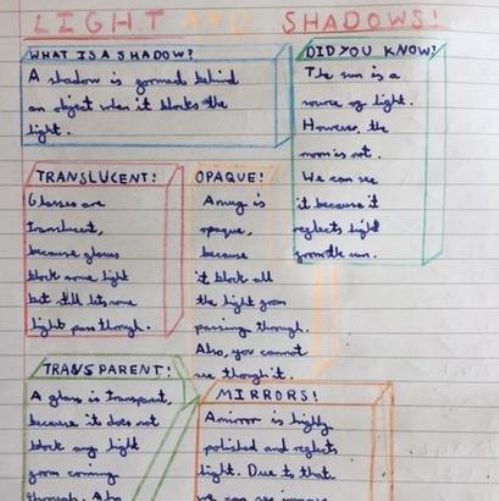 LIGHT AND SHADOWS!
WHAT IS A SHADOW?
A shadow is formed behind
an object when it blocks the
light.
DID YOU KNOW?
The sun is a
source of light.
However, the
moon is not.
We can see
it because it
reflects light
from the sun.
TRANSLUCENT!
Glasses are
translucent,
because glasses
block some light
but still lets some
light pass through.
OPAQUE!
A mug is
opaque,
because
it block all
the light from
passing through.
Also, you cannot
see though it.
TRANSPARENT!
A glass is transparent,
because it does not
block any light
from coming
through. Also
MIRRORS!
A mirror is highly
polished and reflects
light. Due to that
we can see images